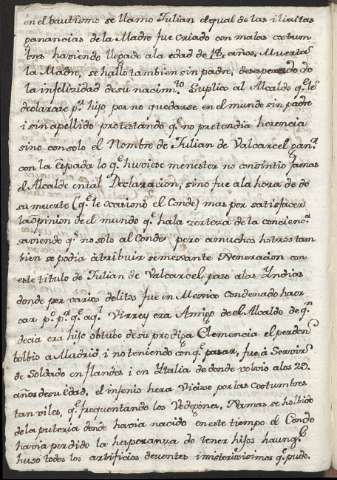 en el bautismo se llamo Julian el qual de las ilicitas
ganancias de la Madre fue criado con malas costum
bres haviendo llegado a la edad de 18 años, Muerta
la Madre, se hallo tambien sin padre, desesperado de
la infelizidad de su nacim.to Suplico al Alcalde q.e le
declarase p.r hijo por no quedarse en el mundo sin padre
i sin apellido protestando q.e no pretendia herencia
sino con solo el Nombre de Julian de Valcarcel ganar
con la Espada lo q.e huviese menester no consintio jamas
el Alcalde en tal Declaracion, sino fue a la hora de
su muerte (q.e le ocasionó el Conde) mas por satisfacer
la opinion del mundo q.e la certeza de la concienc.a
saviendo q.e no solo al Conde pero a muchos hotros tam
bien se podia atribuir semejante Generacion con
este titulo de Julian de Valcarcel, paso a las Yndias
donde por varios delitos fue en Mexico Condenado haor
car p.o p.r q.e aq.l Virrey era Amigo de el Alcalde de q.n
decia era hijo obtubo de su prodiga Clemencia el perdon
bolbio a Madrid, i no teniendo con q.e pasar, fue á Servir
de Soldado en flandes i en Ytalia de donde volvio a los 25
años de su edad, el infenio hera Vicios por las Costumbres
tan viles, q.e frequentando los Vodegones, Ramas se holbido
de la puteria donde havia nacido en este tiempo el Conde
havia perdido la hesperanza de tener hijos haunq.e
huso todos los artificios decentes i misteriosísimos q.e pudo.